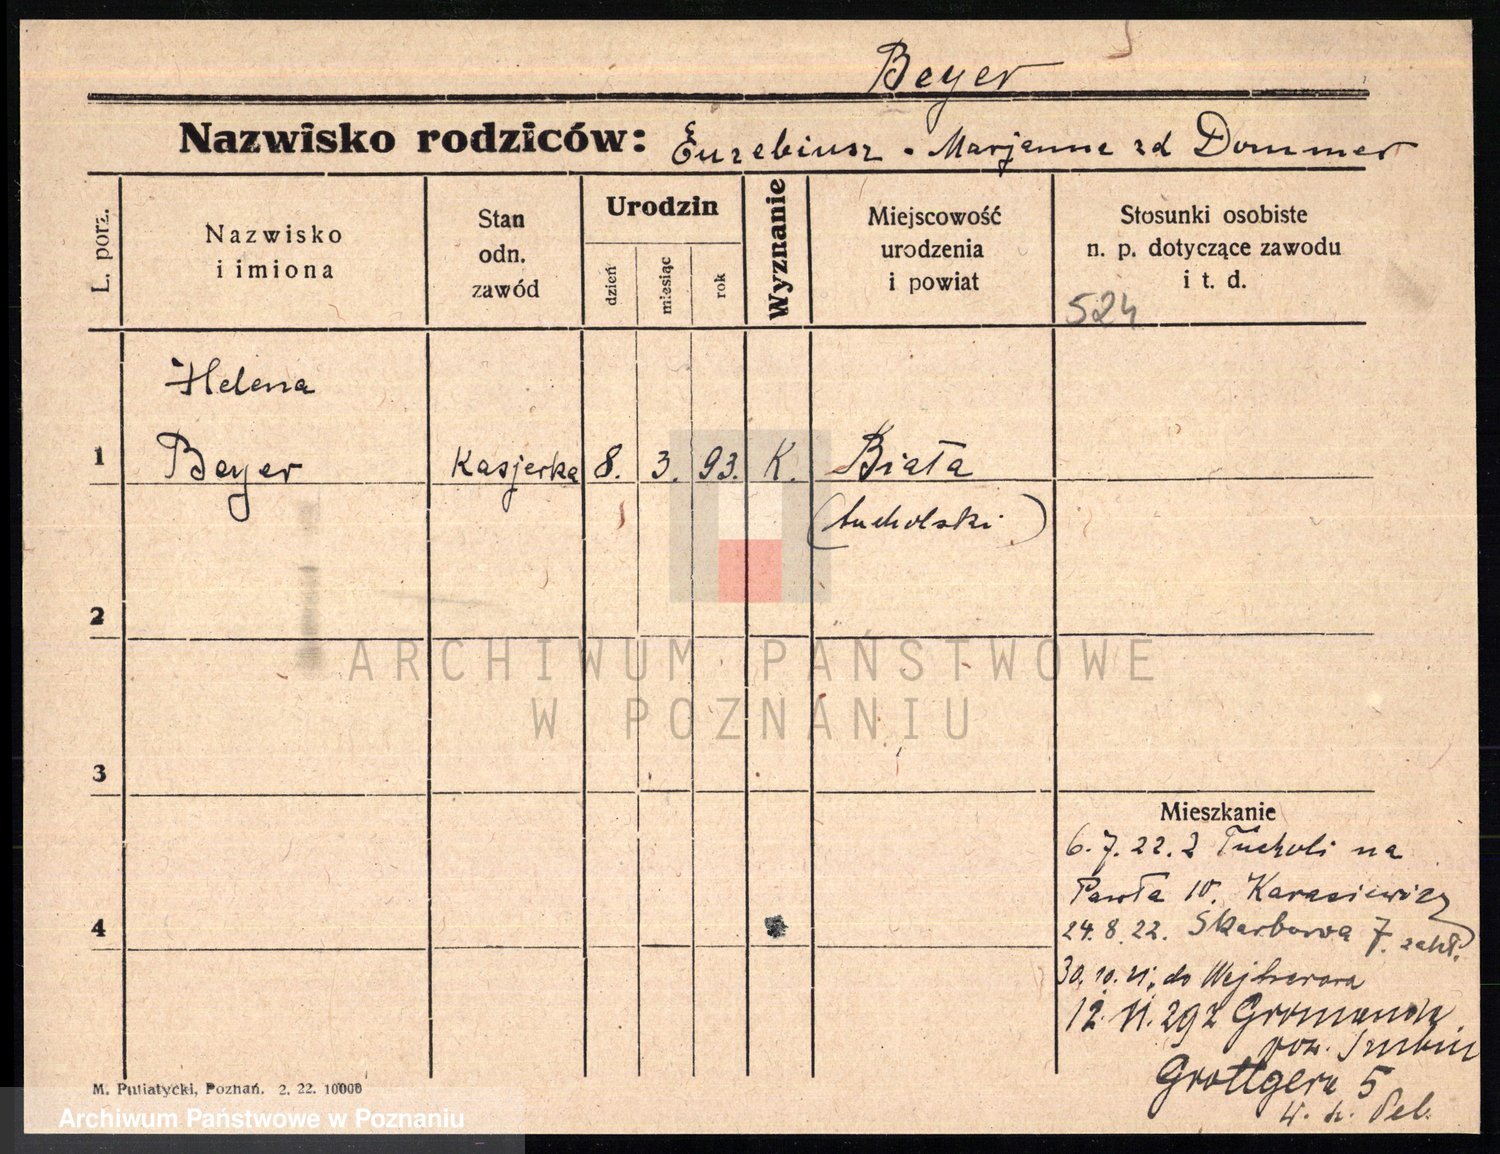 Beyer
Nazwisko rodziców: Euzebiusz - Marjanna zd Dommer
L. porz.
Nazwisko
i imiona
Stan
odn.
zawód
Urodzin
dzień
miesiąc
rok
Wyznanie
Miejscowość
urodzenia
i powiat
Stosunki osobiste
n. p. dotyczące zawodu
i t. d.
524
Helena
1 Beyer Kasjerka 8. 3. 93. K. Biała
(tucholski)
2
ARCHIWUM PAŃSTWOWE
W POZNANIU
3
Mieszkanie
6. 7. 22. z Tucholi na
Pawła 10. Karasiewicz
4
24. 8. 22. Skarbowa 7.
30. 10. do Wejherowa
12. VI. 29 z
pow.
Grottgera 5
M. Putiatycki, Poznań. 2. 22. 10000
Archiwum Państwowe w Poznaniu